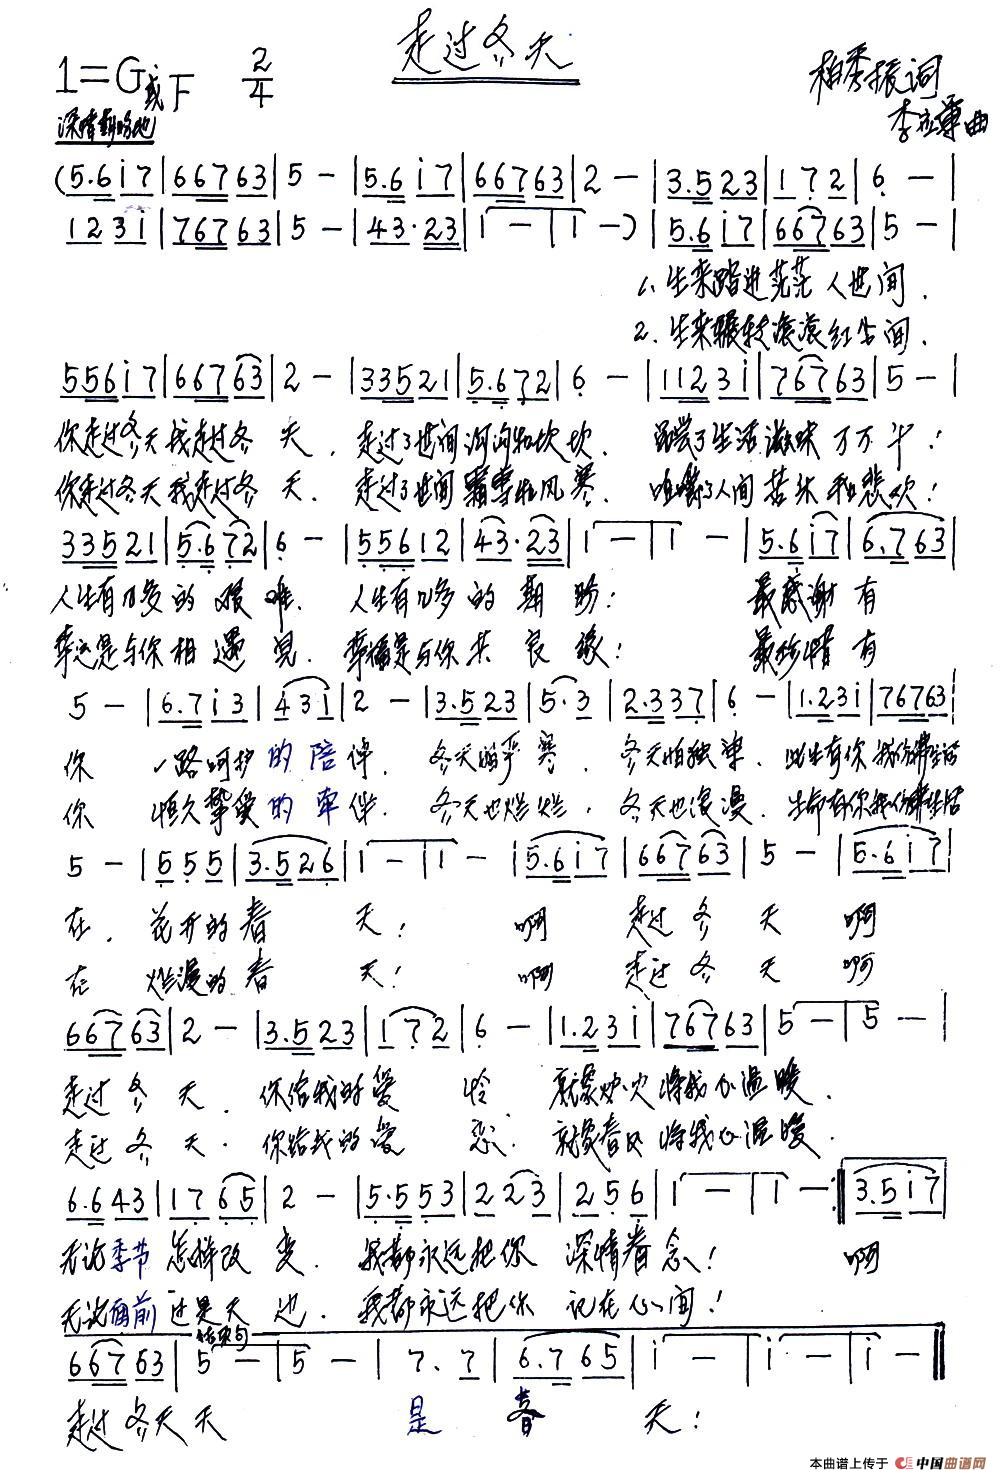 走过冬天
1=G或F 2/4
柏秀振词
李立尊曲
(5.6 i 7|6 6 7 6 3|5 -|5.6 i 7|6 6 7 6 3|2 -|3.5 2 3|1 7 2|6 -|
1 2 3 i|7 6 7 6 3|5 -|4 3 . 2 3|1 -|1 -)|5.6 i 7|6 6 7 6 3|5 -|
1. 生来踏进茫茫人世间.
2. 生来辗转滚滚红尘间.
5 5 6 i 7|6 6 7 6 3|2 -|3 3 5 2 1|5.6 7 2|6 -|1 1 2 3 i|7 6 7 6 3|5 -|
你走过冬天我走过冬天. 走过了世间沟沟和坎坎. 品尝了生活滋味万万千!
你走过冬天我走过冬天. 走过了世间霜雪和风寒. 咀嚼了人间苦乐和悲欢!
3 3 5 2 1|5.6 7 2|6 -|5 5 6 1 2|4 3 . 2 3|1 -|1 -|5.6 i 7|6.7 6 3|
人生有几多的艰难. 人生有几多的期盼! 最感谢有
幸运是与你相遇见. 幸福是与你共良缘! 最珍惜有
5 -|6.7 i 3|4 3 i|2 -|3.5 2 3|5 . 3|2.3 3 7|6 -|1.2 3 i|7 6 7 6 3|
你 一路呵护的陪伴. 冬天的严寒. 冬天怕独单. 此生有你我仿佛生活
你 恒久挚爱的牵伴. 冬天也烂烂. 冬天也浪漫. 生命有你我仿佛生活
5 -|5 5 5|3.5 2 6|1 -|1 -|5.6 i 7|6 6 7 6 3|5 -|5.6 i 7|
在. 花开的春天! 啊 走过冬天 啊
在 烂漫的春天! 啊 走过冬天 啊
6 6 7 6 3|2 -|3.5 2 3|1 7 2|6 -|1.2 3 i|7 6 7 6 3|5 -|5 -|
走过冬天. 你给我的爱怜. 就象炉火将我心温暖.
走过冬天. 你给我的爱恋. 就象春风将我心温暖.
6.6 4 3|1 7 6 5|2 -|5.5 5 3|2 2 3|2 5 6|1 -|1 -:‖3.5 i 7|
无论季节怎样改变. 我都永远把你深情眷念! 啊
无论面前还是天边. 我都永远把你记在心间!
结束句
6 6 7 6 3|5 -|5 -|7 . 7|6.7 6 5|i -|i -|i -‖
走过冬天天 是春天!
本曲谱上传于 中国曲谱网